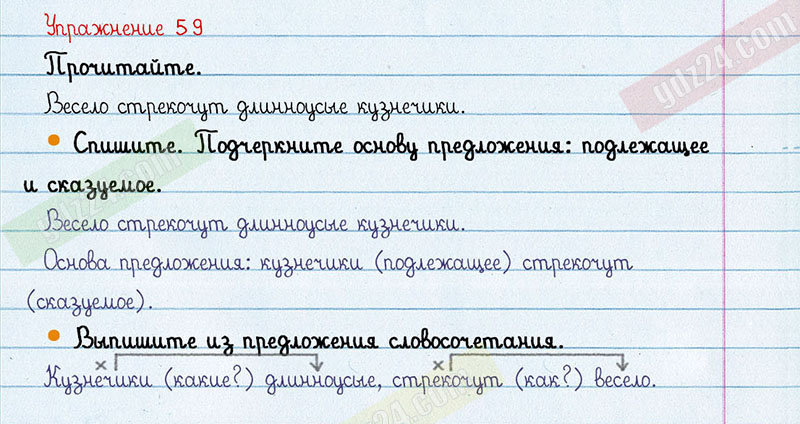 Упражнение 59
ydz24.com
Прочитайте.
Весело стрекочут длинноусые кузнечики.
• Спишите. Подчеркните основу предложения: подлежащее
и сказуемое.
ydz24.com
Весело стрекочут длинноусые кузнечики.
Основа предложения: кузнечики (подлежащее) стрекочут
(сказуемое).
• Выпишите из предложения словосочетания.
х х
Кузнечики (какие?) длинноусые, стрекочут (как?) весело.
ydz24.com